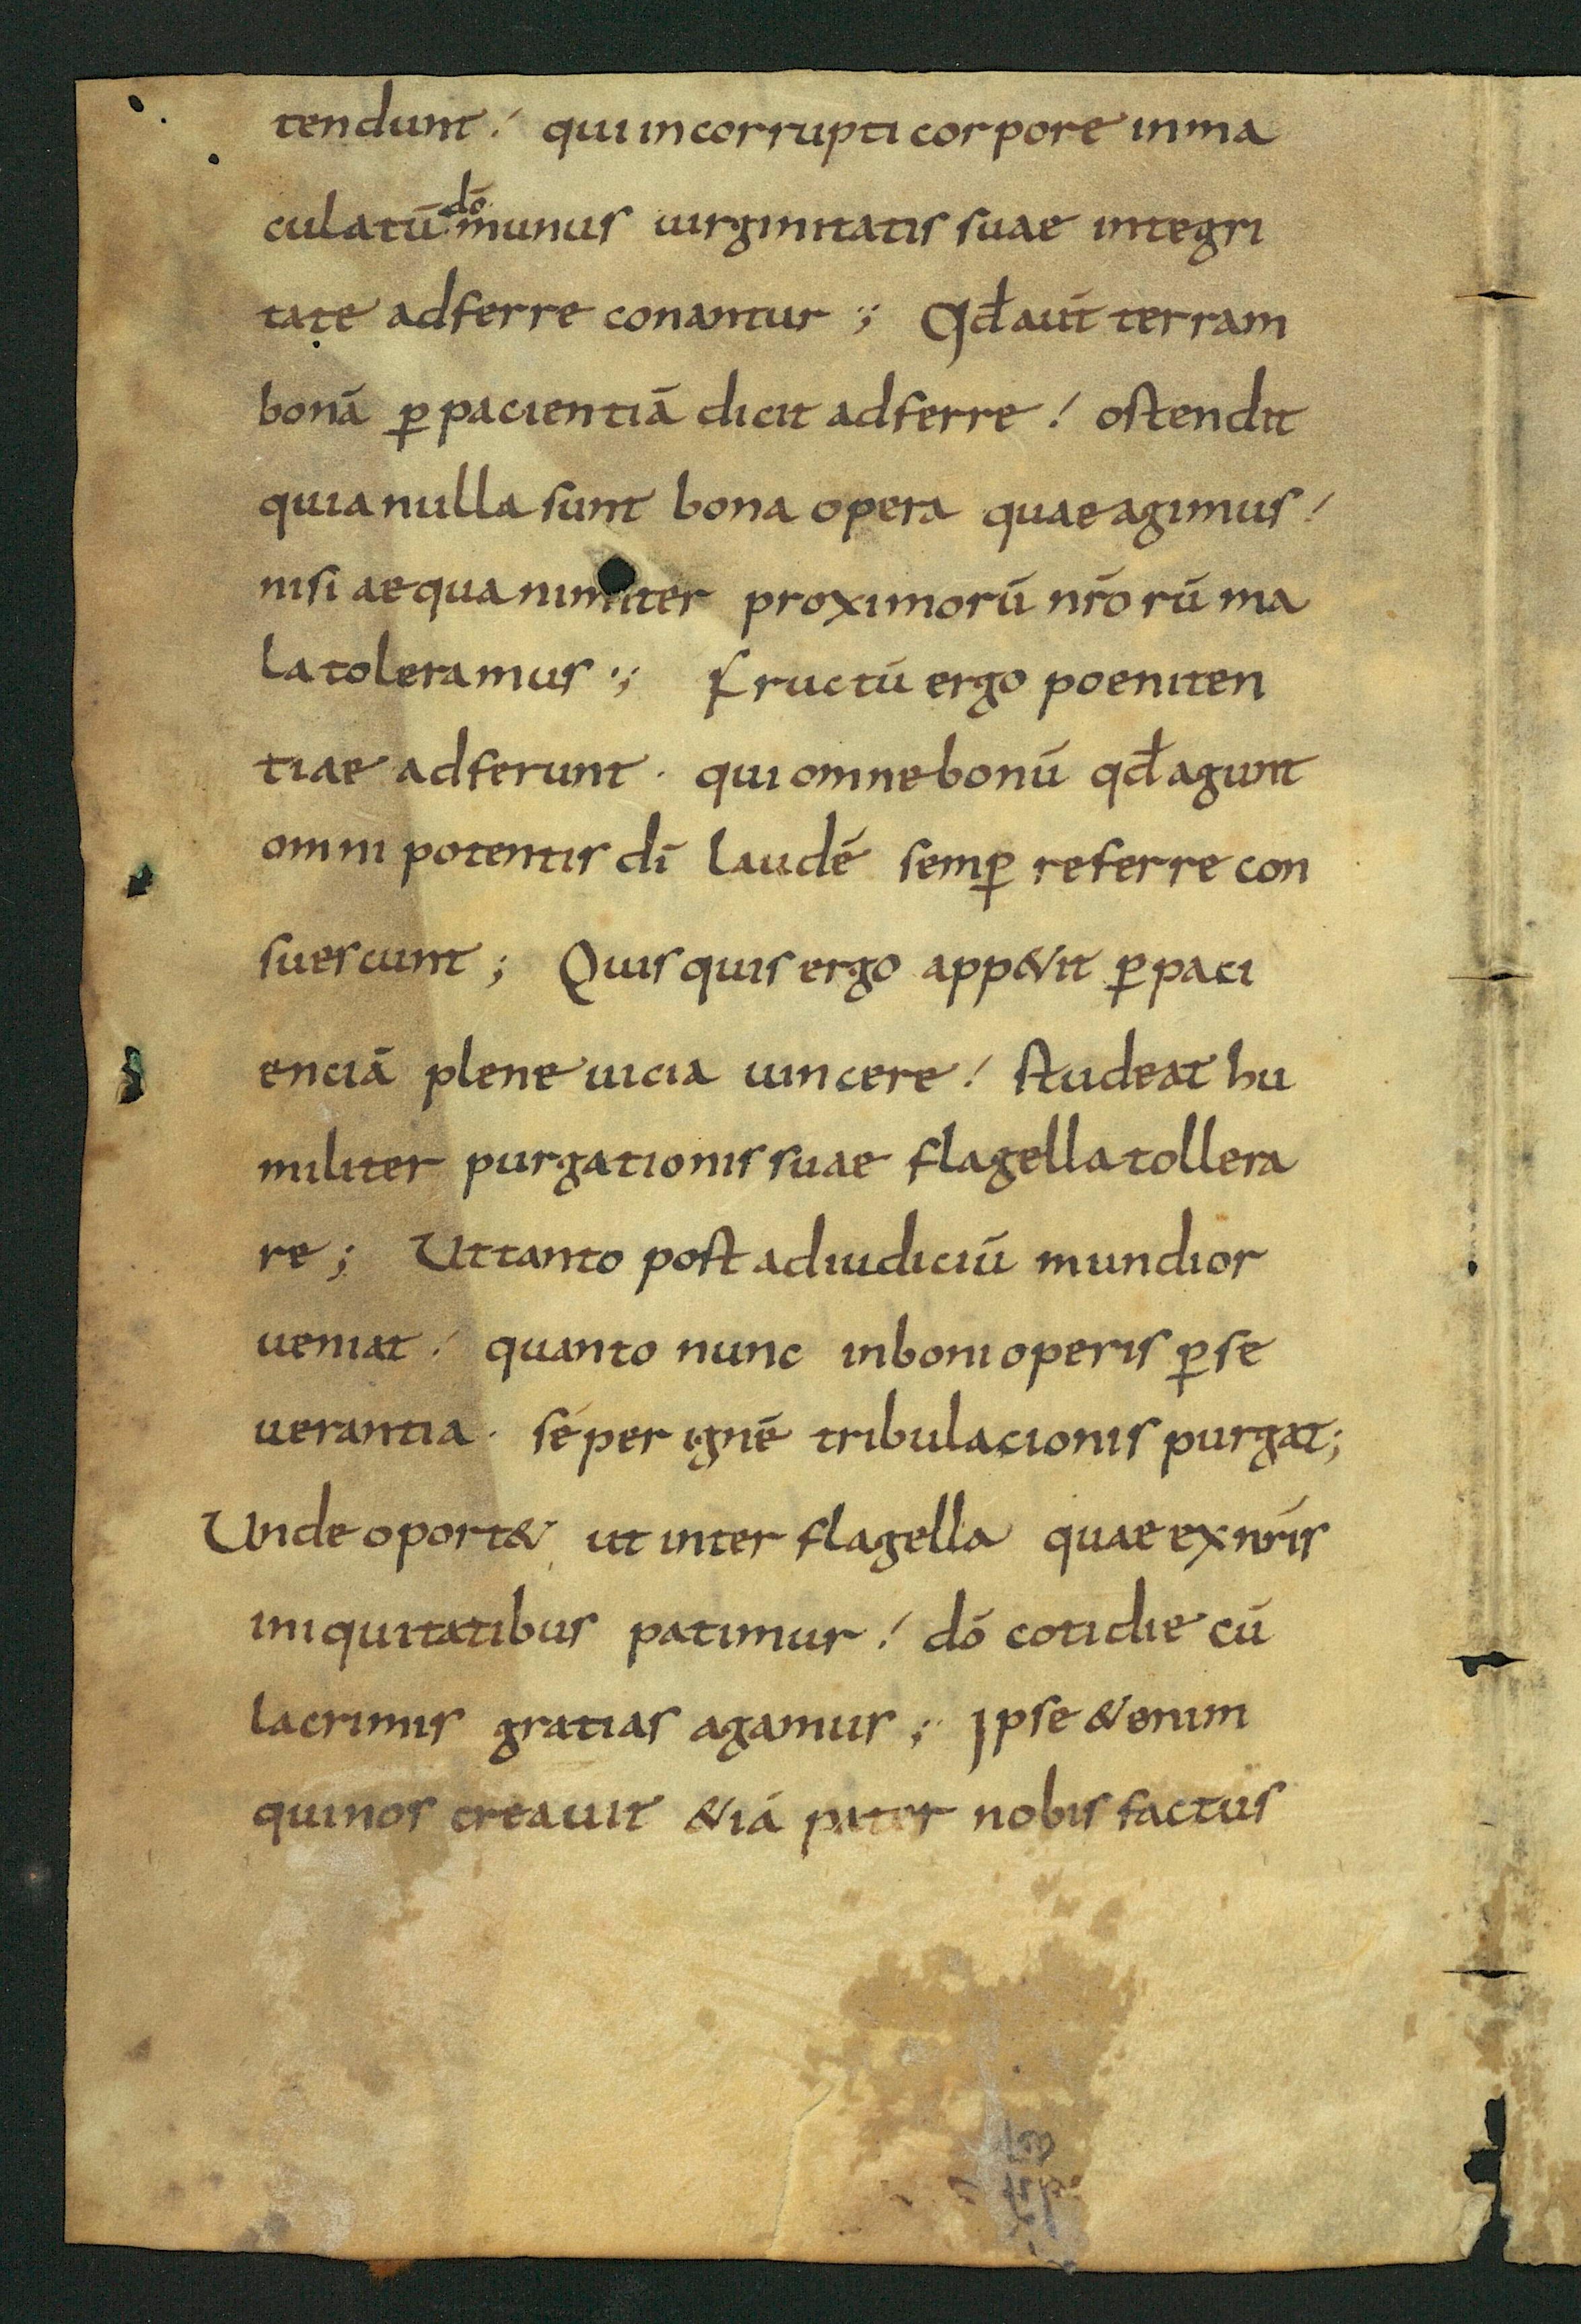 tendunt! qui incorrupti corpore inma
dō
culatū munus uirginitatis suae integri
tate adferre conantur ;; Qđ aut̄ terram
bonā ꝑ pacientiā dicit adferre! ostendit
quia nulla sunt bona opera quae agimus!
nisi aequanimiter proximorū nr̄orū ma
la toleramus ;; Fructū ergo poeniten
tiae adferunt · qui omne bonū qđ agunt
omnipotentis dī laudē semꝑ referre con
suescunt ; Quisquis ergo app&it ꝑ paci
enciā plene uicia uincere! studeat hu
militer purgationis suae flagella tollera
re ; Ut tanto post ad iudiciū mundior
ueniat! quanto nunc in boni operis ꝑse
uerantia · sé per ignē tribulacionis purgat;
Unde oport& ut inter flagella quae ex nr̄is
iniquitatibus patimur! dō cotidie cū
lacrimis gratias agamus ; Ipse &enim
qui nos creauit &iā pater nobis factus